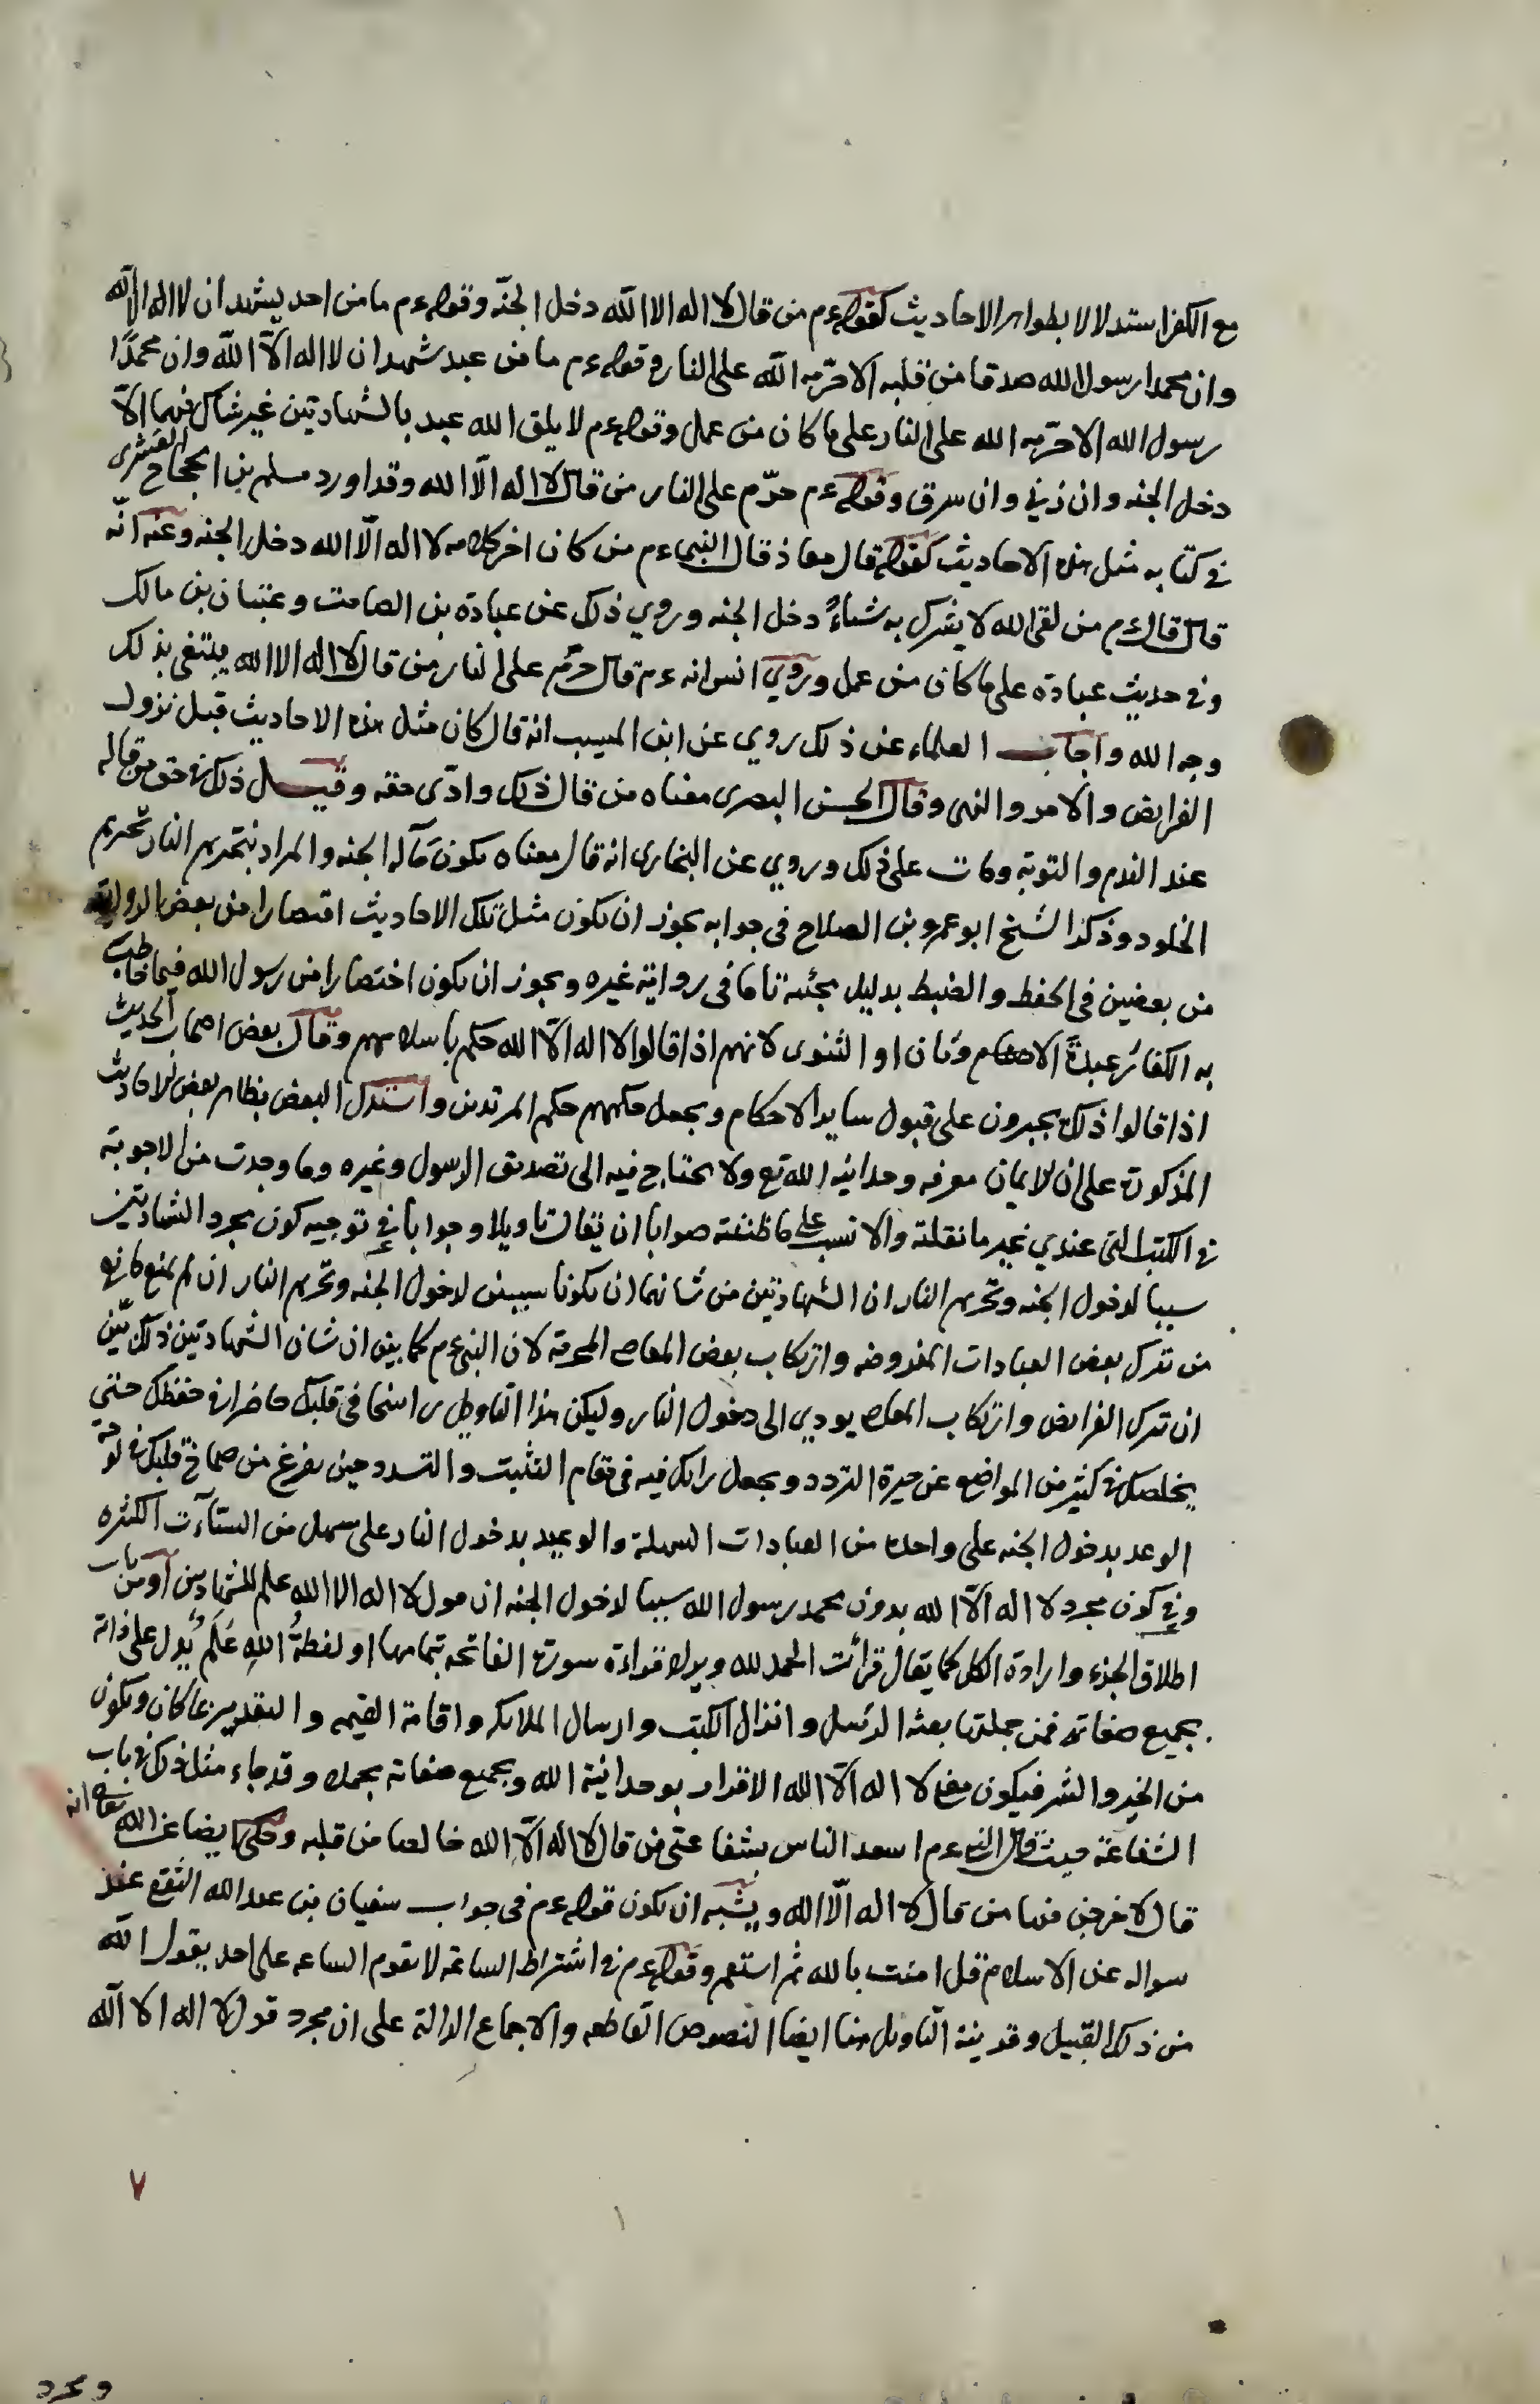 مع الكفر استدلالا بظواهر الاحاديث كقوله عم من قال لا اله الا الله دخل الجنّة وقوله عم ما من احد يشهد ان لا اله الا الله
وان محمدا رسول الله صدقا من قلبه الا حرّمه الله على النار وقوله عم ما من عبد شهد ان لا اله الّا الله وان محمدًا
رسول الله الا حرّمه الله على النار على ما كان من عمل وقوله عم لا يلق الله عبد بالشهادتين غير شاك فيهما الّا
دخل الجنه وان زني وان سرق وقوله عم حرّم على النار من قال لا اله الّا الله وقد اورد مسلم بن الحجاج القشيرى
في كتابه مثل هذه الاحاديث كقوله قال معاذ قال النبي عم من كان اخر كلامه لا اله الّا الله دخل الجنه وعنه انّه
قال قال عم من لقى الله لا يشرك به شياءً دخل الجنه وروي ذلك عن عبادة بن الصامت وعتبان بن مالك
وفي حديث عبادة على ما كان من عمل وروي انس انه عم قال حرّم على النار من قال لا اله الا الله يبتغى بذلك
وجه الله واجاب العلماء عن ذلك روي عن ابن المسيب انه قال كان مثل هذه الاحاديث قبل نزول
الفرايض والامر والنهى وقال الحسن البصرى معناه من قال ذلك وادّى حقه وقيل ذلك في حق من قاله
عند الندم والتوبه ومات على ذلك وروي عن البخارى انه قال معناه يكون مآله الجنه والمراد بتحريم النار تحريم
الخلود وذكر الشيخ ابو عمرو بن الصلاح فى جوابه يجوز ان يكون مثل تلك الاحاديث اقتصارا من بعض الرواية
من بعضين فى الحفظ والضبط بدليل مجئه تاما فى رواية غيره ويجوز ان يكون اختصارا من رسول الله فيما خاطب
به الكفار عبدة الاصنام وثان او الثنوى لانهم اذا قالوا لا اله الّا الله حكم باسلامهم وقال بعض اصحاب الحديث
اذا قالوا ذلك يجبرون على قبول ساير الاحكام ويجعل حكمهم حكم المرتدين واستدل البعض بظاهر بعض الاحاديث
المذكورة على ان الايمان معرفه وحدانية الله تع ولا يحتاج فيه الى تصديق الرسول وغيره وما وجدت من الاجوبة
في الكتب التى عندي غير ما نقلته والانسب على ما ظننته صوابا ان يقال تاويلا وجوابا في توجيه كون مجرد الشهادتين
سببا لدخول الجنه وتحريم النار ان الشهادتين من شانهما ان يكونا سببين لدخول الجنه وتحريم النار ان لم يمنع مانع
من ترك بعض العبادات المفروضه وارتكاب بعض المعاصى المحرمة لان النبي عم كما بين ان شان الشهادتين ذلك بيّن
ان ترك الفرايض وارتكاب المعاصى يودي الى دخول النار وليكن هذا التاويل راسخا فى قلبك حاضرا في حفظك حتى
يخلصك في كثير من المواضع عن حيرة التردد ويجعل رايك فيه فى مقام التثبت والتسدد حين يفرغ من صماخ قلبك في
الوعد بدخول الجنه على واحدة من العبادات السهلة والوعيد بدخول النار على سهل من السئات الكثيره
وفي كون مجرد لا اله الّا الله بدون محمد رسول الله سببا لدخول الجنه ان قول لا اله الا الله علم للشهادتين او من باب
اطلاق الجزء وارادة الكل كما يقال قرأت الحمد لله ويراد قراءة سورة الفاتحه بتمامها او لفظةُ اللهِ عَلَمٌ يدل على ذاته
بجميع صفاته فمن جملتها بعثه الرسل وانزال الكتب وارسال الملايكه واقامة القيمه والتقدير بما كان ويكون
من الخير والشر فيكون معنى لا اله الّا الله الاقرار بوحدانية الله وبجميع صفاته بجملة وقد جاء مثل ذلك في باب
الشفاعة حيث قال النبى عم اسعد الناس بشفاعتى من قال لا اله الّا الله خالصا من قلبه وحكى ايضا عن الله تعالى انه
قال لاخرجن منها من قال لا اله الّا الله ويشبه ان يكون قوله عم فى جواب سفيان بن عبد الله الثقفى عند
سواله عن الاسلام قل امنت بالله ثم استقم وقوله عم في اشتراط الساعة لا تقوم الساعه على احد يقول الله
من ذلك القبيل وقرينة التاويل هنا ايضا النصوص القاطعه والاجماع الدالة على ان مجرد قول لا اله الا الله
٧
ومجرد